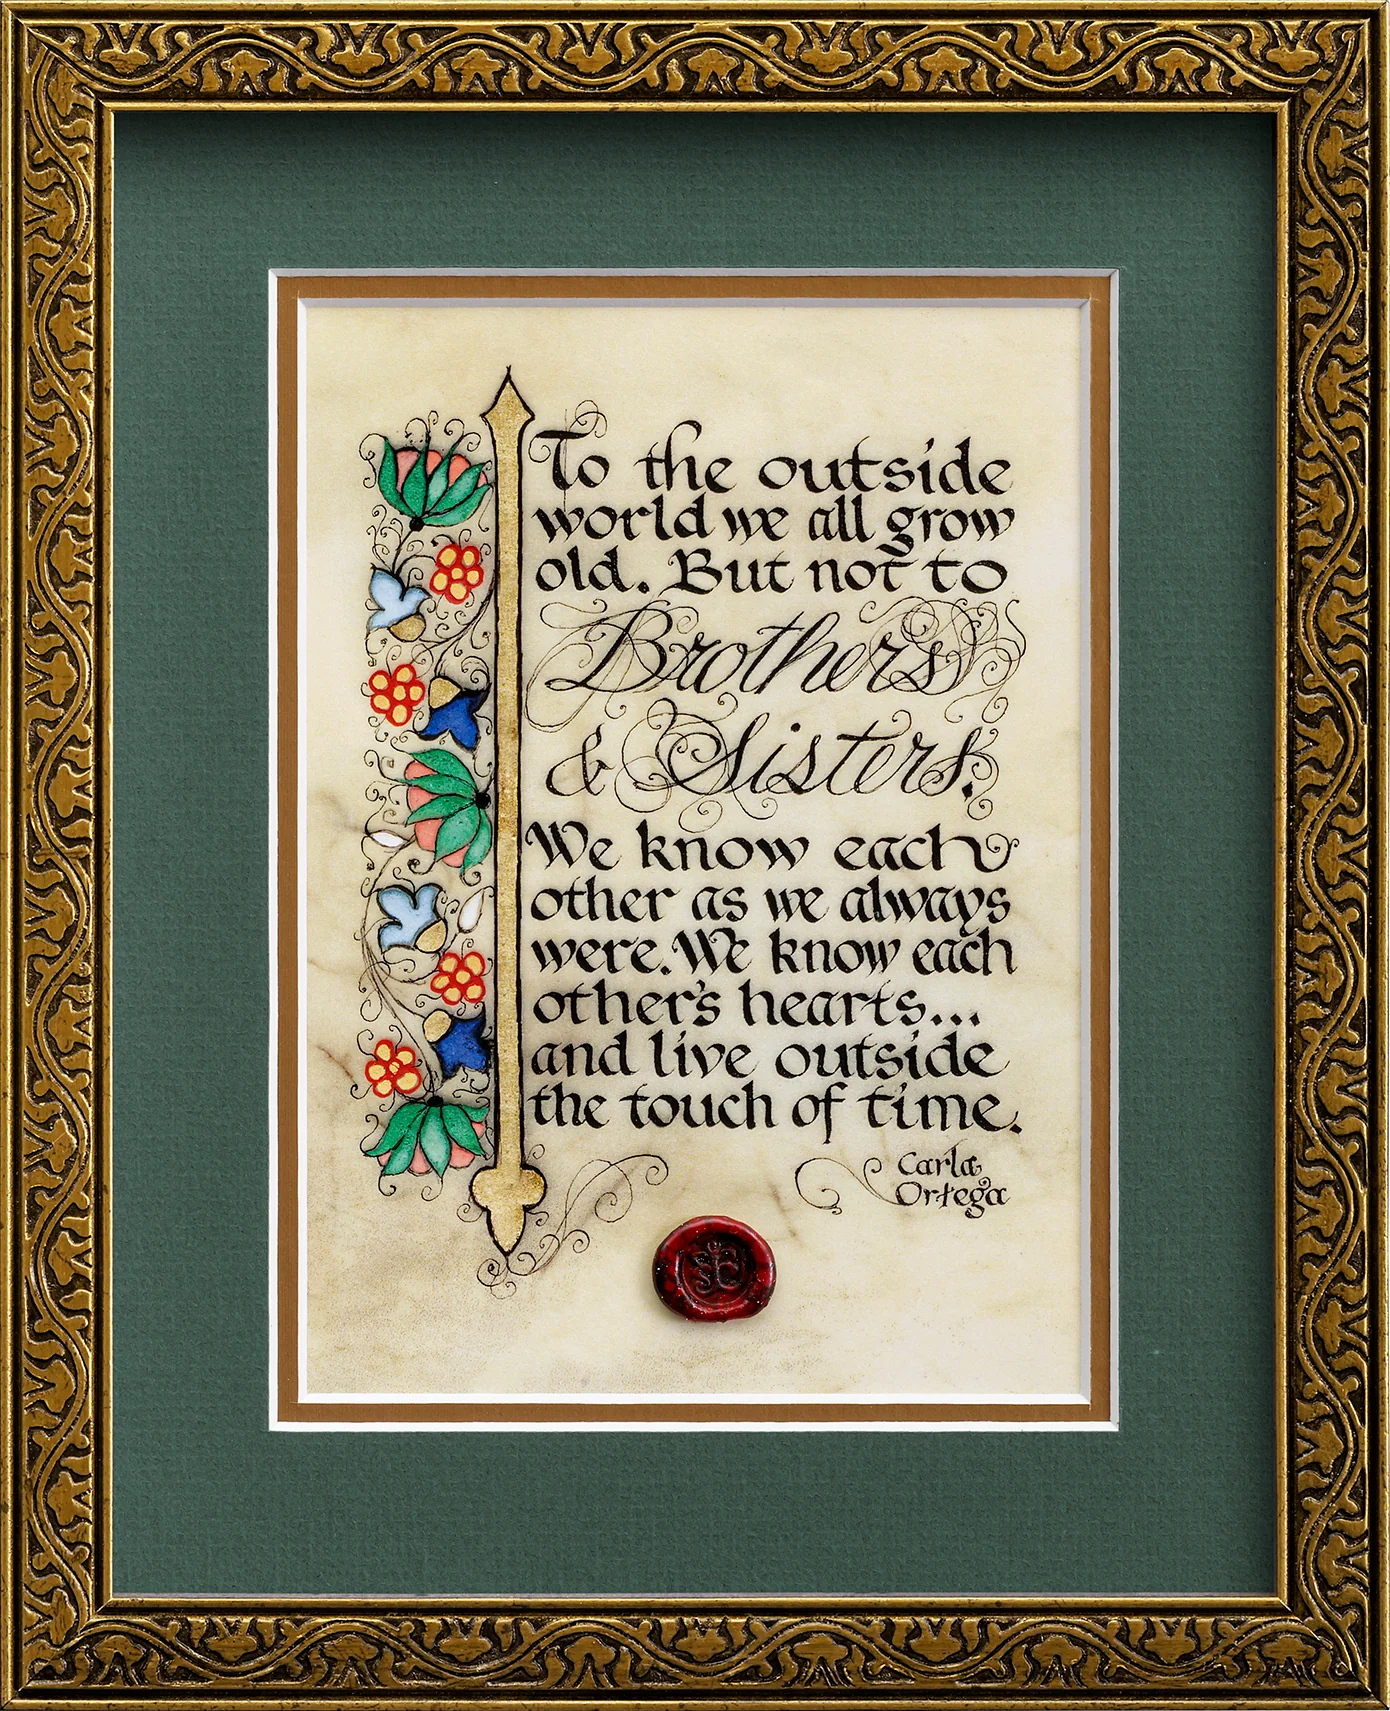 To the outside
world we all grow
old. But not to
Brothers
& Sisters.
We know each
other as we always
were. We know each
other's hearts...
and live outside
the touch of time.
Carla
Ortega